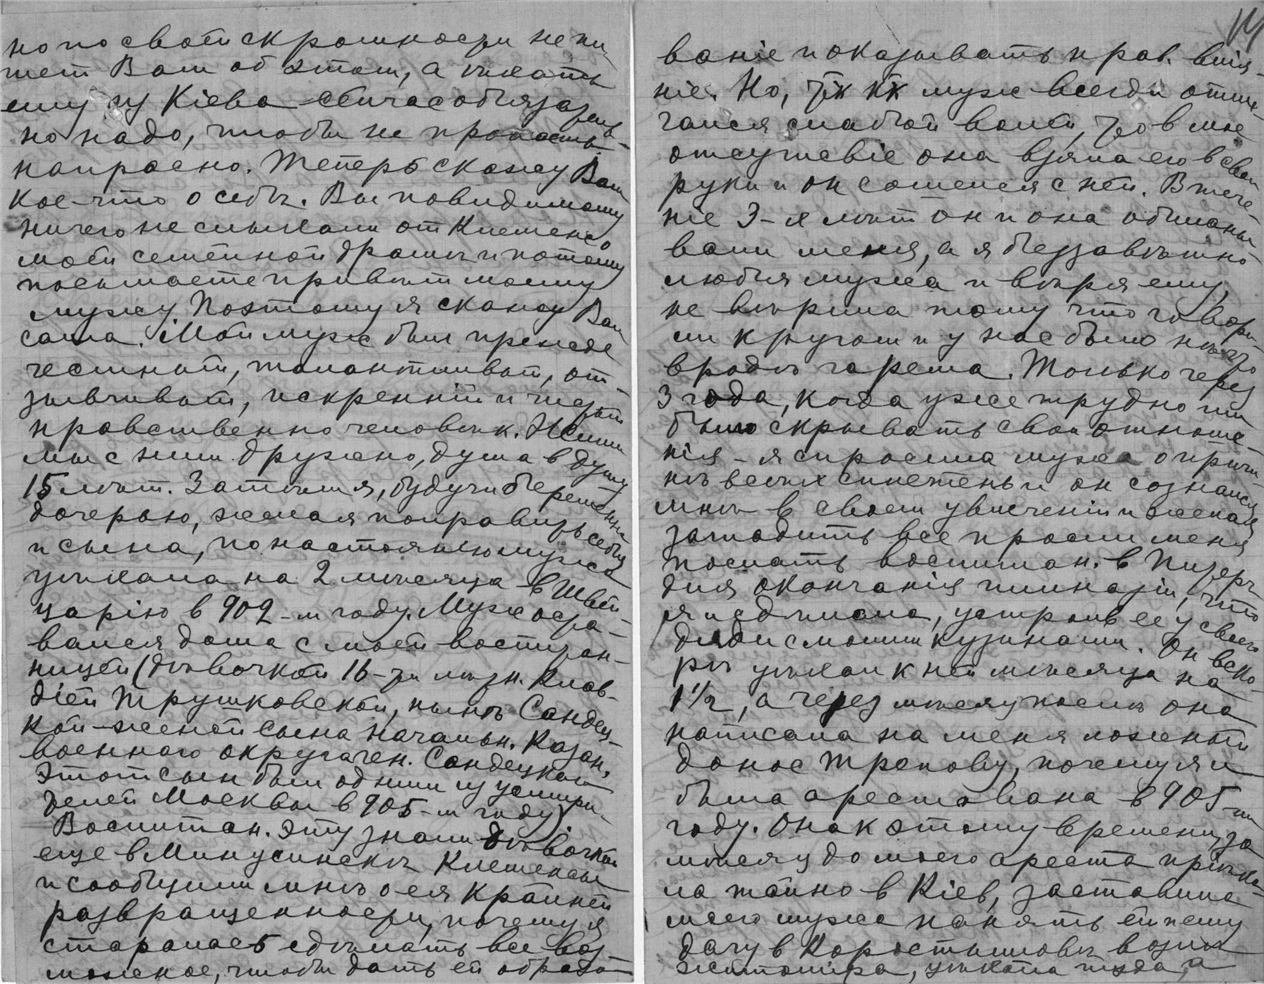 но по своей скромности не пи
шет Вам об этом, а уехать
ему из Кіева сейчас обязатель
но надо, чтобы не пропасть
напрасно. Теперь скажу Вам
кое-что о себѣ. Вы повидимому
ничего не слыхали от Клеменсо
моей семейной драмы и потому
посылаете привѣт моему
мужу. Поэтому я скажу Вам
сама. Мой муж был прежде
честный, талантливый, от-
зывчивый, искренній и
нравственно человѣк. Жили
мы с ним дружно, душа в душу
15 лѣт. Затѣм я, будучи беременна
дочерью, желая поправить себя
и сына, по настоянію мужа
уѣхала на 2 мѣсяца в Швей
царію в 902-м году. Муж оста-
вался дома с моей воспитан-
ницей (дѣвочкой 16-ти лѣтн. Клав-
діей Трушковской, нынѣ Сандец-
кой-женой сына начальн. Казан.
военного округа ген. Сандецкой
Этот сын был одним из усмири-
телей Москвы в 905-м году)
Воспитан. эту знали дѣвочкой
еще в Минусинскѣ Клеменсы
и сообщили мнѣ о ея крайней
развращенности, почему я
старалась сдѣлать все воз
можное, чтобы дать ей образо
14
ваніе и оказывать нрав. влія-
ніе. Но, тк кк муж всегда отли
чался слабой волей, то в мое
отсутствіе она взяла его в свои
руки и он сошелся с ней. В тече-
ніе 3-х лѣт он и она обманы
вали меня, а я беззавѣтно
любя мужа и вѣря ему,
не вѣрила тому что говори-
ли кругом и у нас было нѣчто
вродѣ гарема. Только через
3 года, когда уже трудно им
было скрывать свои отноше
нія - я спросила мужа о причи
нѣ всѣх сплетень и он сознался
мнѣ в своем увлеченіи и желая
загладить все просил меня
послать воспитан. в Питер
для окончанія гимназіи, что
я и сдѣлала, устроив ее у своего
дяди с моими кузинами. Он вско-
рѣ уѣхал к ней мѣсяца на
1½, а через мѣсяц послѣ она
написала на меня ложный
донос Трепову, почему я и
была арестована в 905-м
году. Она к этому времени, за
мѣсяц до моего ареста пріѣха-
ла тайно в Кіев, заставила
моего мужа нанять ей
дачу в Коростышевѣ возлѣ
Житоміра, уѣхала туда, а